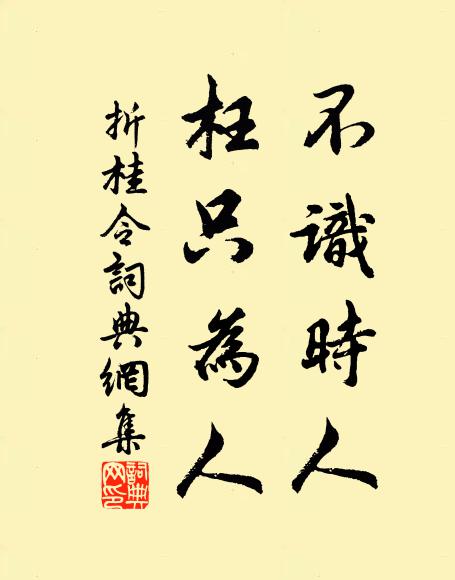 不識時人
枉只為人
折桂令詞典網集
詞典
网印